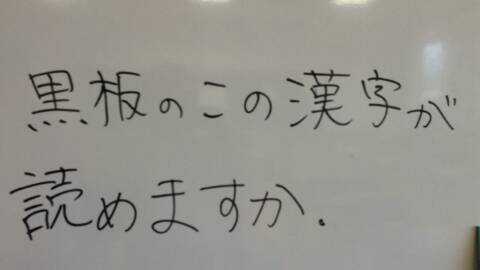 黒板のこの漢字が
読めますか.